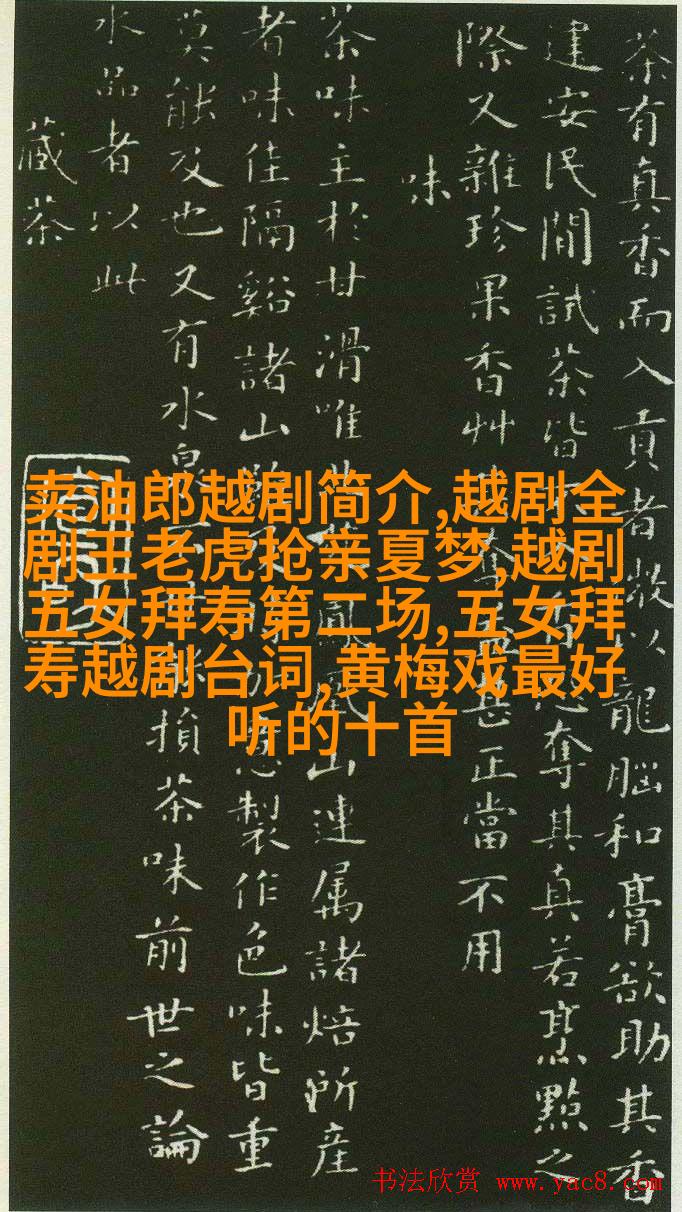 茶有真香而入貢者微以龍腦和膏欲助其香
建安民間試茶皆不入香恐奪其真若烹點之
際又雜珍果香艸其奪益甚正當不用
味
茶味主於甘滑唯鳳凰山連属諸焙所産
者味佳隔谿諸山雖加意製作色味皆重
莫能及也又有水泉損茶味前世之論
水品者以此
藏茶
卖油郎越剧简介,越剧全
剧王老虎抢亲夏梦,越剧
五女拜寿第二场,五女拜
寿越剧台词,黄梅戏最好
听的十首
书法欣赏 www.yac8.com